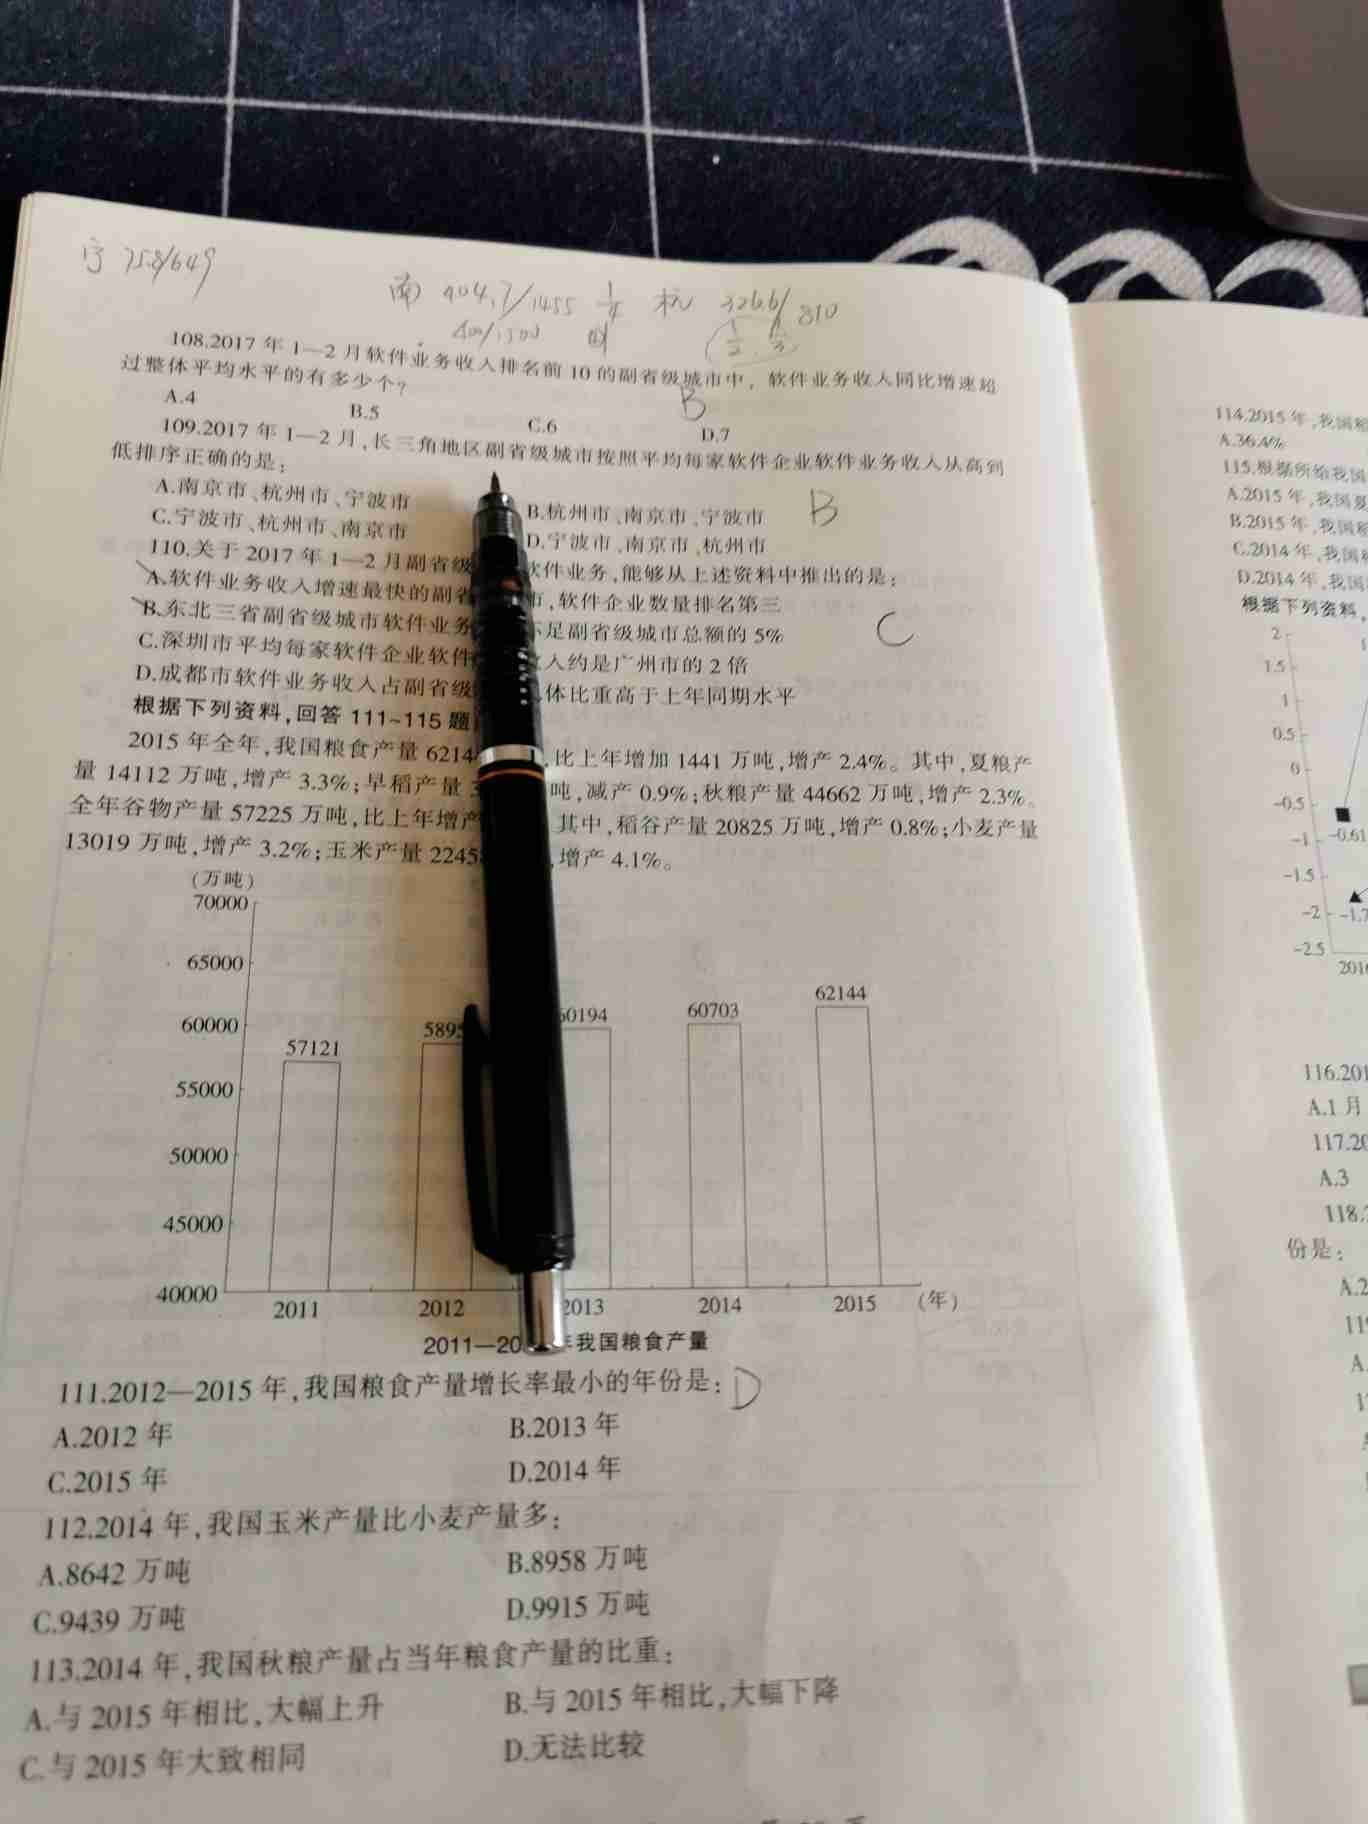 758/649
南 404.7/1455 1/4 杭 326.6/810
400/1500
108.2017年1—2月软件业务收入排名前10的副省级城市中，软件业务收入同比增速超
过整体平均水平的有多少个？
B
A.4 B.5 C.6 D.7
109.2017年1—2月，长三角地区副省级城市按照平均每家软件企业软件业务收入从高到
低排序正确的是：
A.南京市、杭州市、宁波市 B.杭州市、南京市、宁波市 B
C.宁波市、杭州市、南京市 D.宁波市、南京市、杭州市
110.关于2017年1—2月副省级 软件业务，能够从上述资料中推出的是：
A.软件业务收入增速最快的副省 市，软件企业数量排名第三
B.东北三省副省级城市软件业务 不足副省级城市总额的5% C
C.深圳市平均每家软件企业软件 收入约是广州市的2倍
D.成都市软件业务收入占副省级 体比重高于上年同期水平
根据下列资料，回答111~115题
2015年全年，我国粮食产量6214 ，比上年增加1441万吨，增产2.4%。其中，夏粮产
量14112万吨，增产3.3%；早稻产量3 吨，减产0.9%；秋粮产量44662万吨，增产2.3%。
全年谷物产量57225万吨，比上年增产 其中，稻谷产量20825万吨，增产0.8%；小麦产量
13019万吨，增产3.2%；玉米产量2245 ，增产4.1%。
（万吨）
70000
65000
60000
55000
50000
45000
40000
57121 5895 60194 60703 62144
2011 2012 2013 2014 2015 （年）
2011—20 年我国粮食产量
111.2012—2015年，我国粮食产量增长率最小的年份是： D
A.2012年 B.2013年
C.2015年 D.2014年
112.2014年，我国玉米产量比小麦产量多：
A.8642万吨 B.8958万吨
C.9439万吨 D.9915万吨
113.2014年，我国秋粮产量占当年粮食产量的比重：
A.与2015年相比，大幅上升 B.与2015年相比，大幅下降
C.与2015年大致相同 D.无法比较
114.2015年，我国粮
A.36.4%
115.根据所给我国
A.2015年，我国夏
B.2015年，我国
C.2014年，我国
D.2014年，我国
根据下列资料，
2
1.5
1
0.5
0
-0.5
-1 -0.61
-1.5
-2 -1.7
-2.5
201
116.201
A.1月
117.20
A.3
118.
份是：
A.2
11
A.